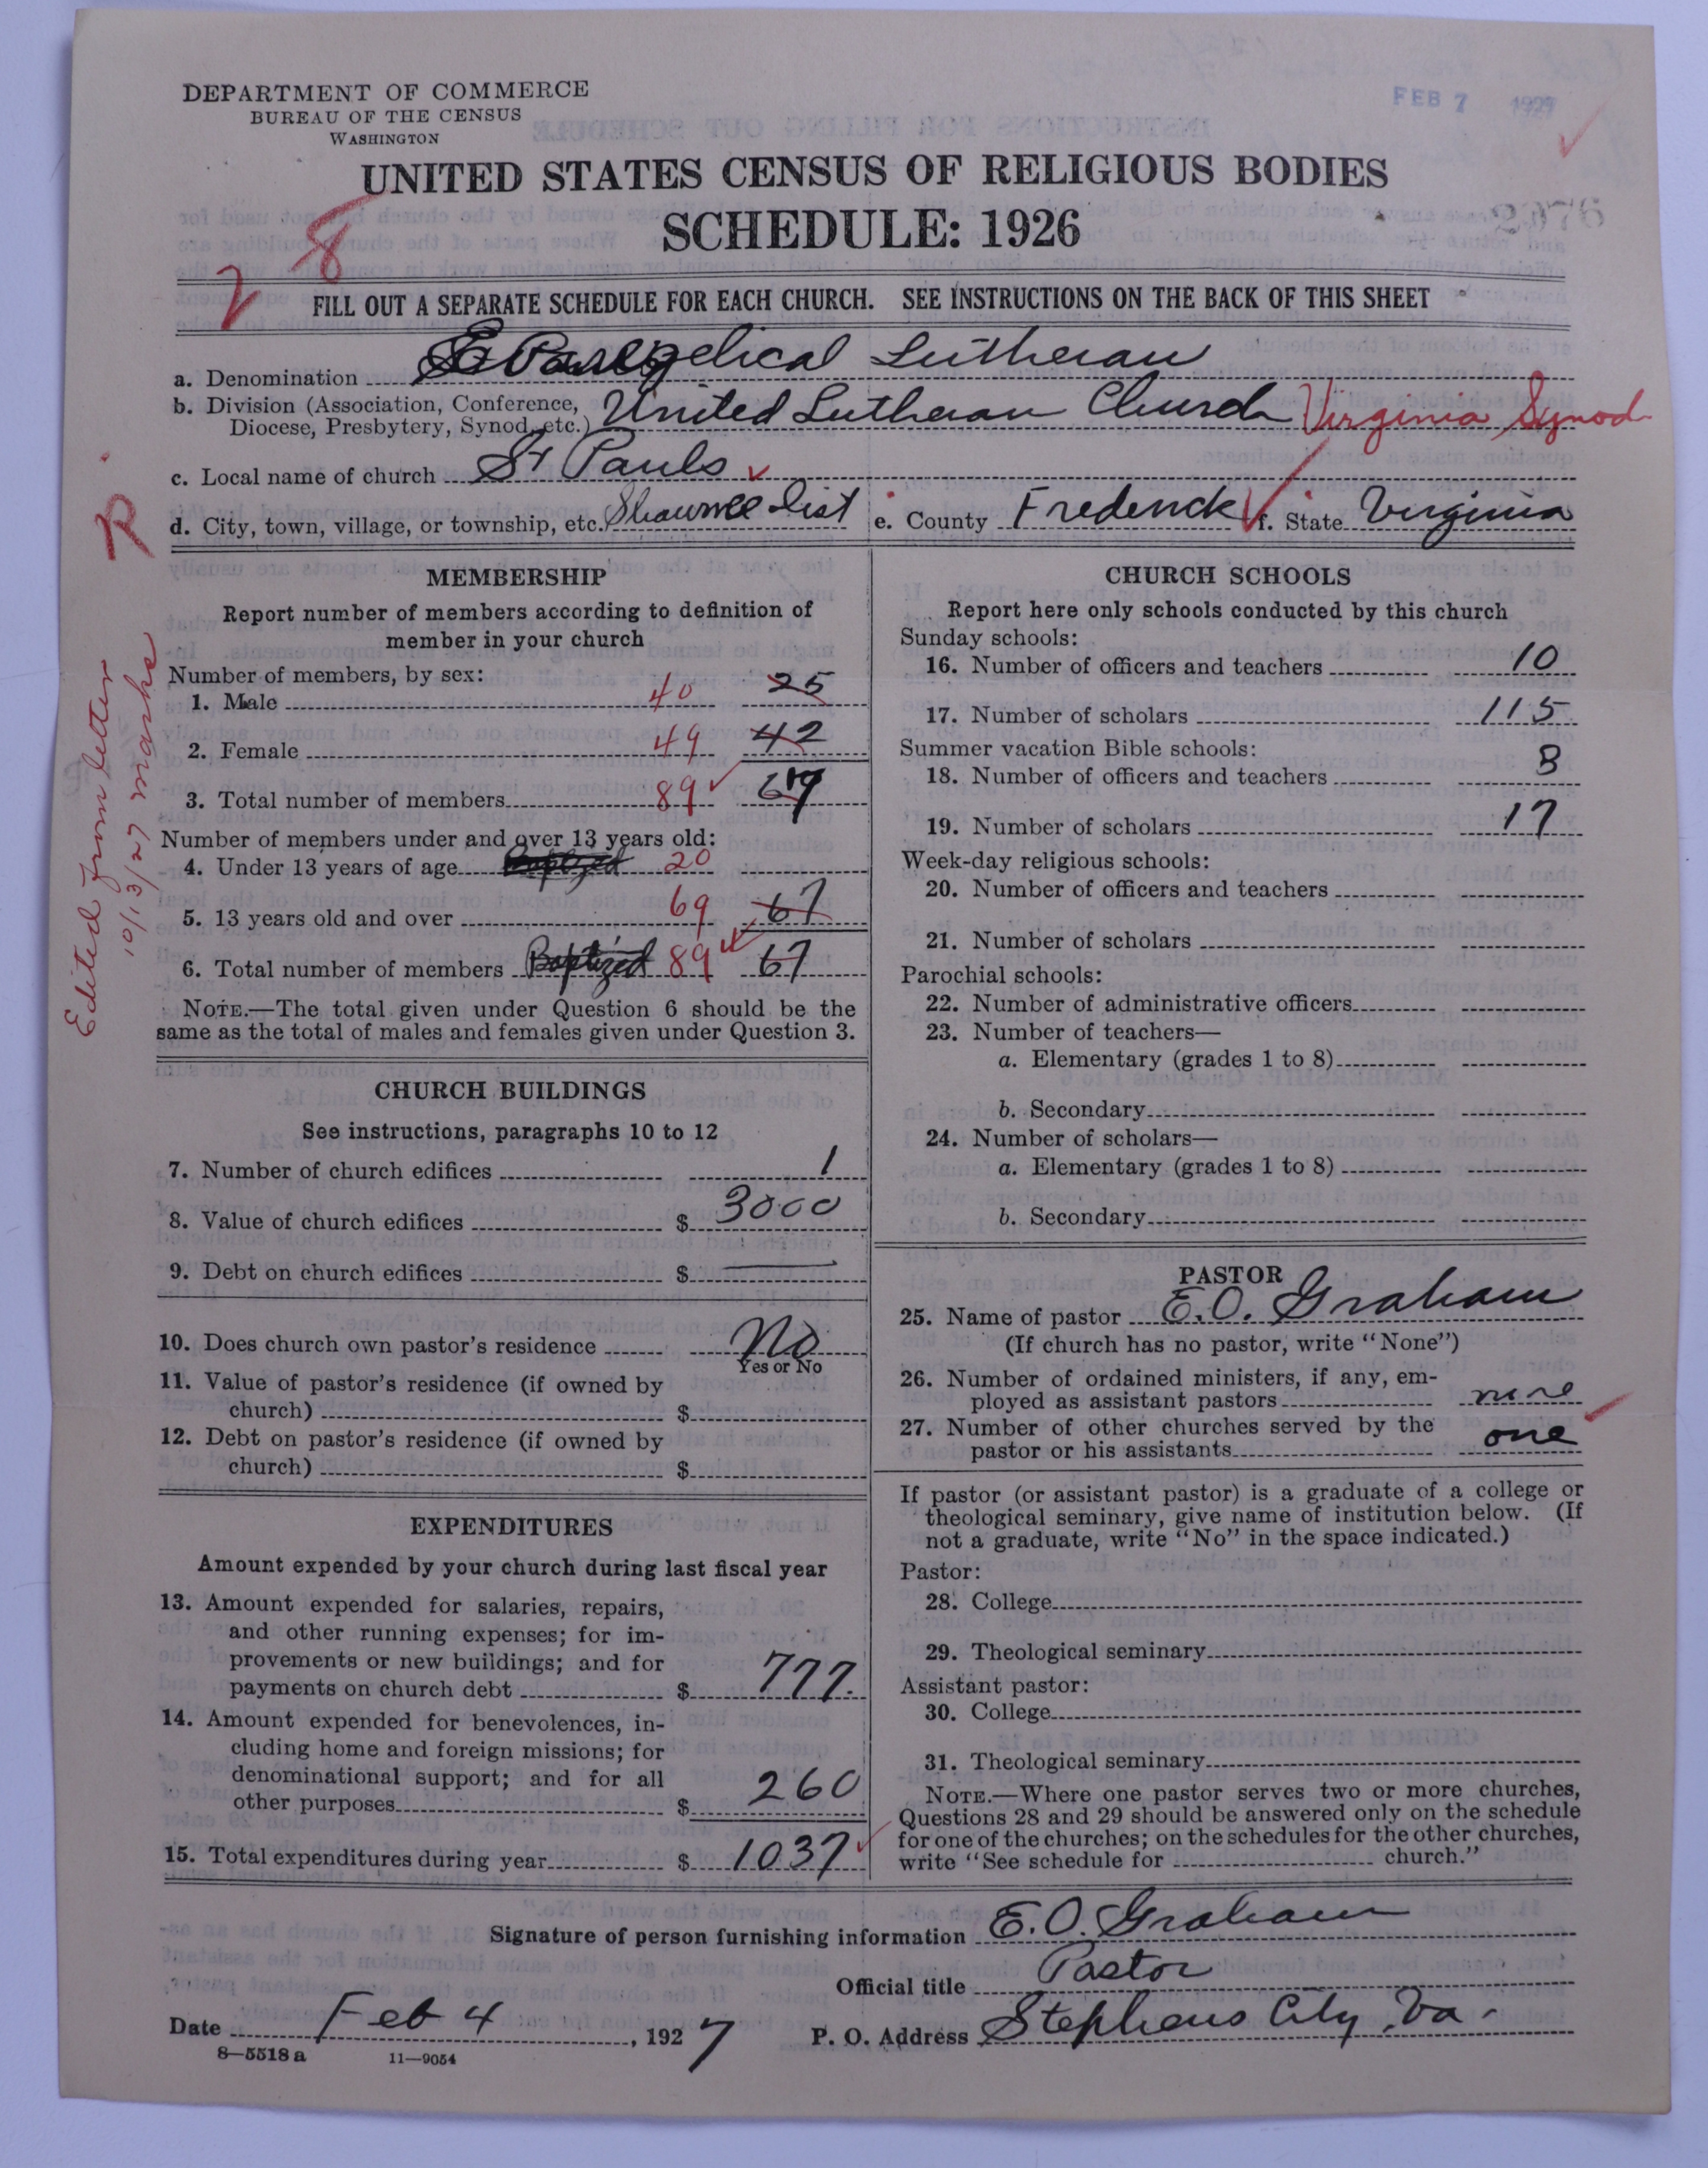 DEPARTMENT OF COMMERCE
BUREAU OF THE CENSUS
WASHINGTON
FEB 7 1927
UNITED STATES CENSUS OF RELIGIOUS BODIES
SCHEDULE: 1926
28
FILL OUT A SEPARATE SCHEDULE FOR EACH CHURCH. SEE INSTRUCTIONS ON THE BACK OF THIS SHEET
a. Denomination Evangelical Lutheran
b. Division (Association, Conference, Diocese, Presbytery, Synod, etc.) United Lutheran Church Virginia Synod
c. Local name of church St Pauls
d. City, town, village, or township, etc. Shawnee Dist e. County Frederick f. State Virginia
R
Edited from letter
10/13/27 marks
MEMBERSHIP
Report number of members according to definition of
member in your church
Number of members, by sex:
1. Male 40 25
2. Female 49 42
3. Total number of members 89 67
Number of members under and over 13 years old:
4. Under 13 years of age Baptized 20
5. 13 years old and over 69 67
6. Total number of members Baptized 89 67
NOTE.—The total given under Question 6 should be the
same as the total of males and females given under Question 3.
CHURCH BUILDINGS
See instructions, paragraphs 10 to 12
7. Number of church edifices 1
8. Value of church edifices $ 3000
9. Debt on church edifices $ —
10. Does church own pastor's residence No
Yes or No
11. Value of pastor's residence (if owned by
church) $
12. Debt on pastor's residence (if owned by
church) $
EXPENDITURES
Amount expended by your church during last fiscal year
13. Amount expended for salaries, repairs,
and other running expenses; for im-
provements or new buildings; and for
payments on church debt $ 777.
14. Amount expended for benevolences, in-
cluding home and foreign missions; for
denominational support; and for all
other purposes $ 260
15. Total expenditures during year $ 1037
CHURCH SCHOOLS
Report here only schools conducted by this church
Sunday schools:
16. Number of officers and teachers 10
17. Number of scholars 115
Summer vacation Bible schools:
18. Number of officers and teachers 8
19. Number of scholars 17
Week-day religious schools:
20. Number of officers and teachers
21. Number of scholars
Parochial schools:
22. Number of administrative officers
23. Number of teachers—
a. Elementary (grades 1 to 8)
b. Secondary
24. Number of scholars—
a. Elementary (grades 1 to 8)
b. Secondary
PASTOR
25. Name of pastor E. O. Graham
(If church has no pastor, write "None")
26. Number of ordained ministers, if any, em-
ployed as assistant pastors none
27. Number of other churches served by the
pastor or his assistants one
If pastor (or assistant pastor) is a graduate of a college or
theological seminary, give name of institution below. (If
not a graduate, write "No" in the space indicated.)
Pastor:
28. College
29. Theological seminary
Assistant pastor:
30. College
31. Theological seminary
NOTE.—Where one pastor serves two or more churches,
Questions 28 and 29 should be answered only on the schedule
for one of the churches; on the schedules for the other churches,
write "See schedule for church."
Signature of person furnishing information E. O. Graham
Official title Pastor
Date Feb 4, 1927 P. O. Address Stephens City, Va.
8—5518 a 11—9054